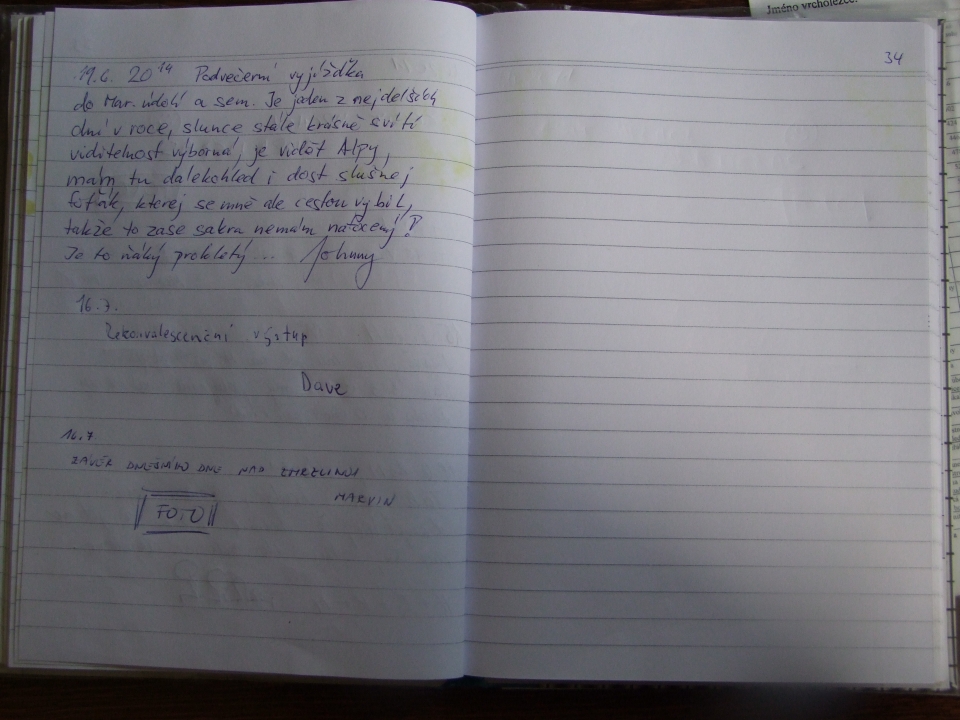 Jméno vrcholezce:
34
11.6. 20¹⁴ Podvečerní vyjížďka
do Mar. údolí a sem. Je jeden z nejdelších
dní v roce, slunce stále krásně svítí
viditelnost výborná, je vidět Alpy,
mám tu dalekohled i dost slušnej
foťák, kterej se mně ale cestou vybil,
takže to zase sakra nemám natočený!
Je to ňáký prokletý... Johnny
16.7.
Rekonvalescenční výstup
Dave
16.7
ZÁVĚR DNEŠNÍHO DNE NAD
MARVIN
FOTO